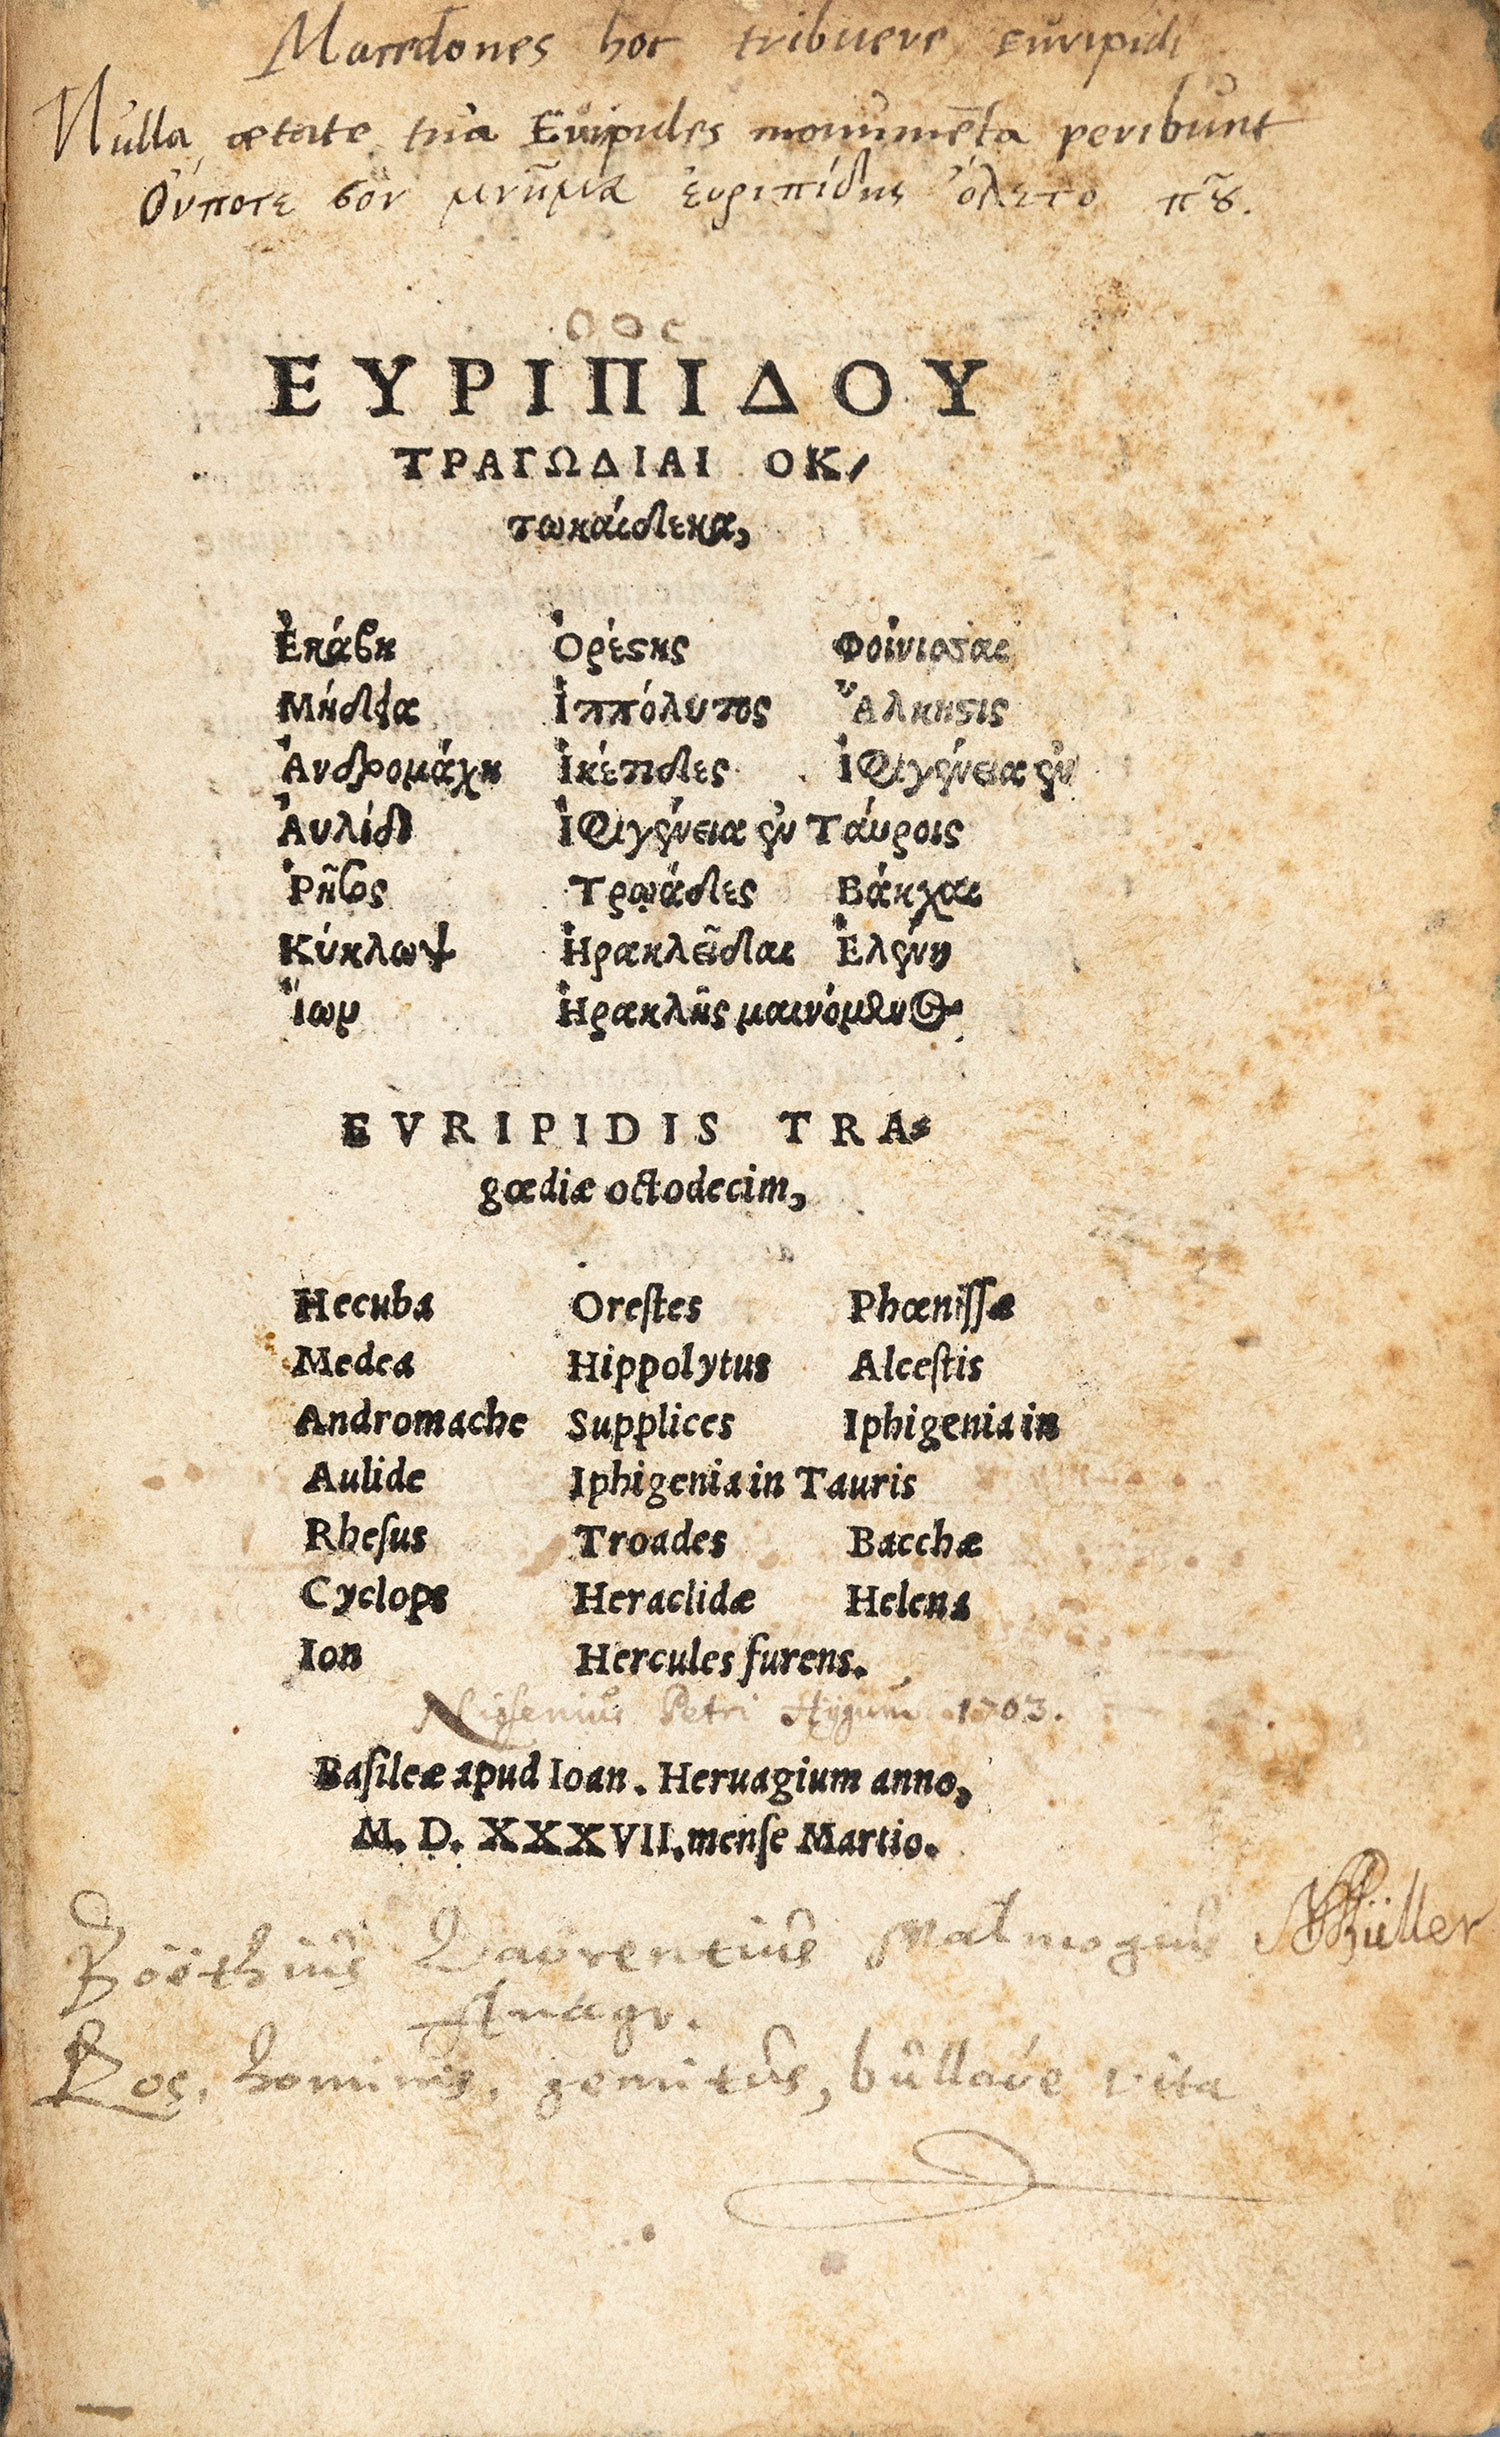 Macedones hoc tribuere euripidi
Nulla ætate tua Euripides monumēta peribunt
Ὀυποτε σὸν μνῆμα ἐυριπίδης ὄλετο
ΕΥΡΙΠΙΔΟΥ
ΤΡΑΓΩΔΙΑΙ ΟΚ-
τωκαίδεκα,
Ἑκάβη Ὀρέστης Φοίνισσαι
Μήδεια Ἱππόλυτος Ἄλκηστις
Ἀνδρομάχη Ἱκέτιδες Ἰφιγένεια ἐν
Ἀυλίδι Ἰφιγένεια ἐν Τάυροις
Ῥῆσος Τρωάδες Βάκχαι
Κύκλωψ Ἡρακλεῖδαι Ἑλένη
Ἴων Ἡρακλῆς μαινόμενος
EVRIPIDIS TRA-
gœdiæ octodecim,
Hecuba Orestes Phœnissæ
Medea Hippolytus Alcestis
Andromache Supplices Iphigenia in
Aulide Iphigenia in Tauris
Rhesus Troades Bacchæ
Cyclops Heraclidæ Helena
Ion Hercules furens.
Petri 1703.
Basileæ apud Ioan. Heruagium anno,
M. D. XXXVII. mense Martio.
Böëthius Laurentius Malmogius Müller
Anagr.
Ros, hominis, gemitus, bullave vita